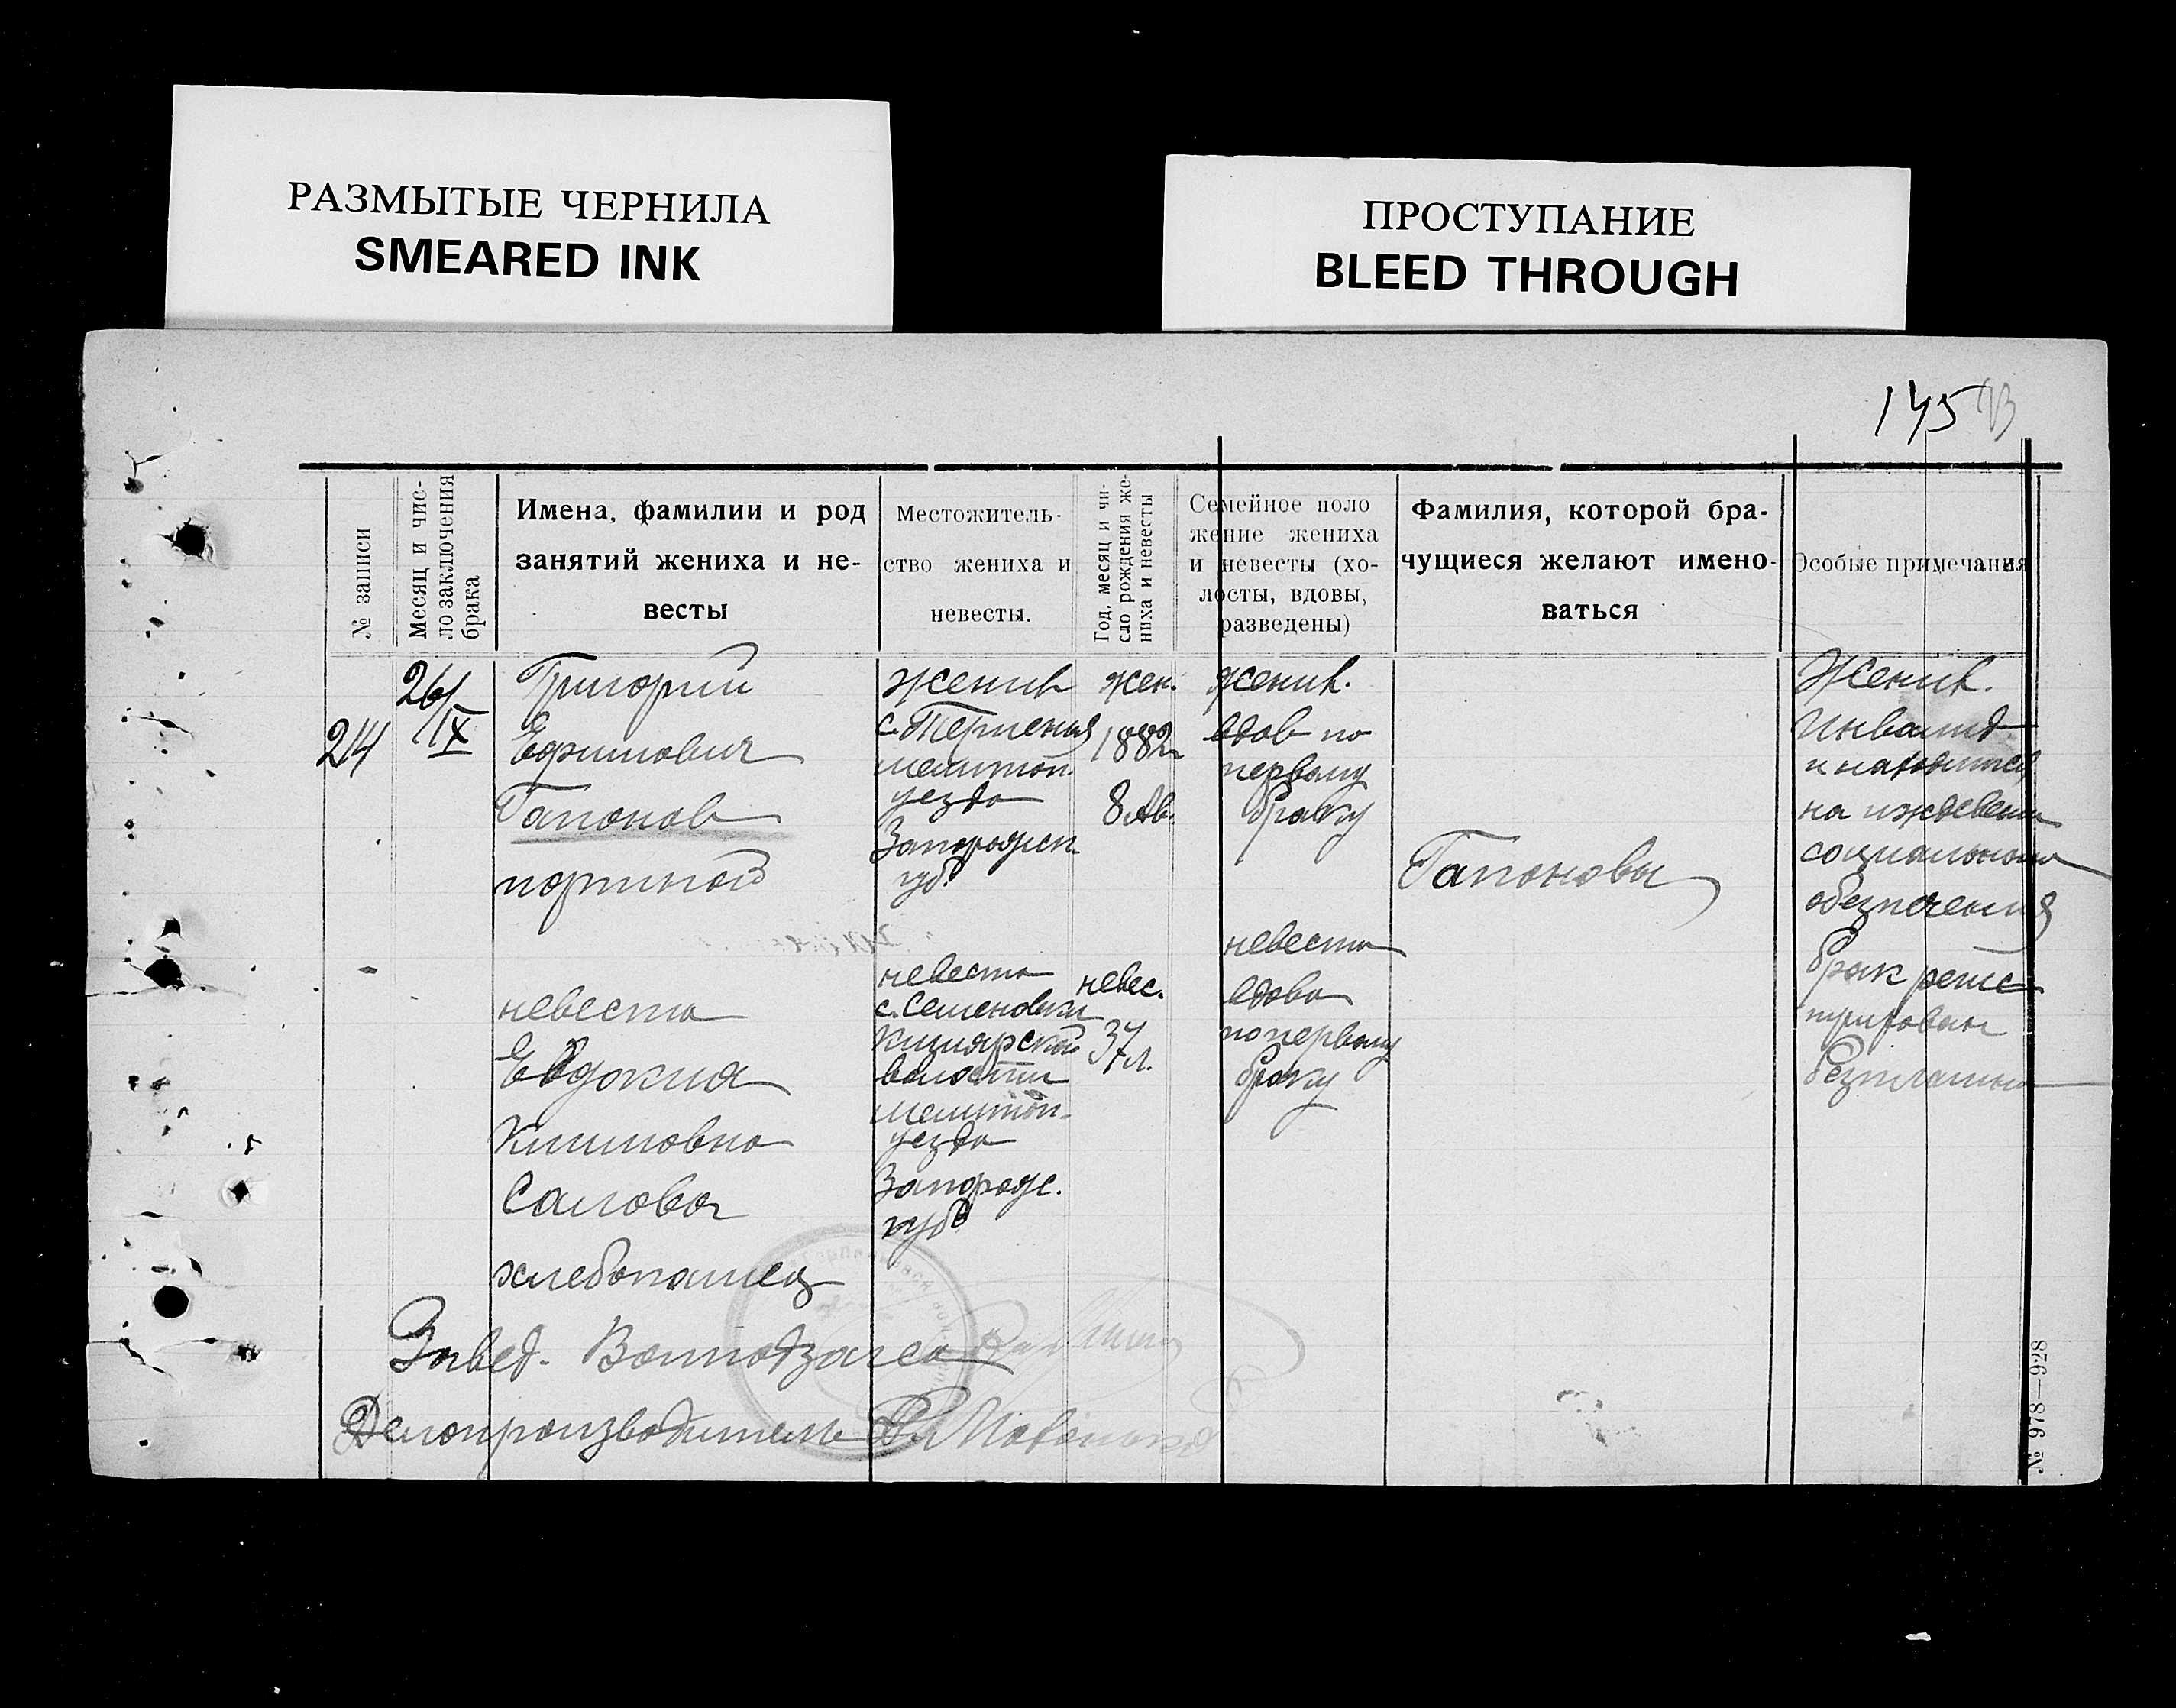 РАЗМЫТЫЕ ЧЕРНИЛА
SMEARED INK
ПРОСТУПАНИЕ
BLEED THROUGH
145
№ записи
Месяц и чис-
ло заключения
брака
Имена, фамилии и род
занятий жениха и не-
весты
Местожитель-
ство жениха и
невесты.
Год, месяц и чи-
сло рождения же-
ниха и невесты
Семейное поло
жение жениха
и невесты (хо-
лосты, вдовы,
разведены)
Фамилия, которой бра-
чущиеся желают имено-
ваться
Особые примечания
214
26/IX
Григорий
Ефимович
Гапонов
портной
невеста
Евдокия
Климовна
Салова
хлебопашец
жених
с. Терпения
мелитоп.
уезда
Запорожск.
губ.
невеста
с. Семеновки
Кизиярской
волости
мелитоп-
уезда
Запорож.
губ.
жен.
1882
8 Ав.
невес.
37
л.
жених.
вдов по
первому
браку
невеста
вдова
по первому
браку
Гапоновы
Жених.
Инвалид
и находится
на иждевении
социального
обезпечения
брак регис
трирован
безплатно
Завед. Волподзагса
Делопроизводитель
№ 978—928